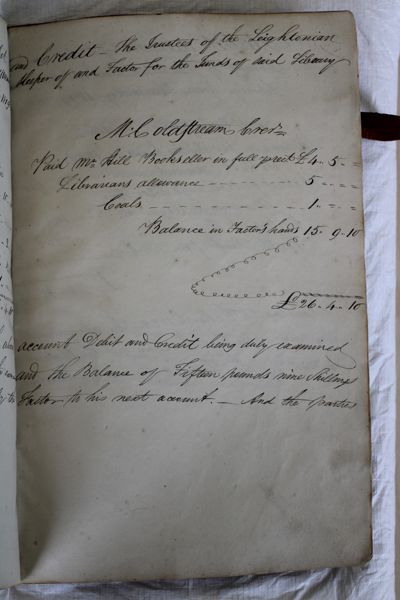 and Credit – The Trustees of the Leightonian
Keeper of and Factor for the Funds of said Library
Mr Coldstream Cred.r
Paid Mr Hill Bookseller in full p. rect £4 „ 5 „ =
Librarians allowance - - - - - - - - 5 „ = „ =
Coals - - - - - - - - 1 „ = „ =
Balance in Factor's hands 15 „ 9 „ 10
£26 „ 4 „ 10
account Debit and Credit being duly examined
and the Balance of Fifteen pounds nine Shillings
Factor to his next account. – And the parties